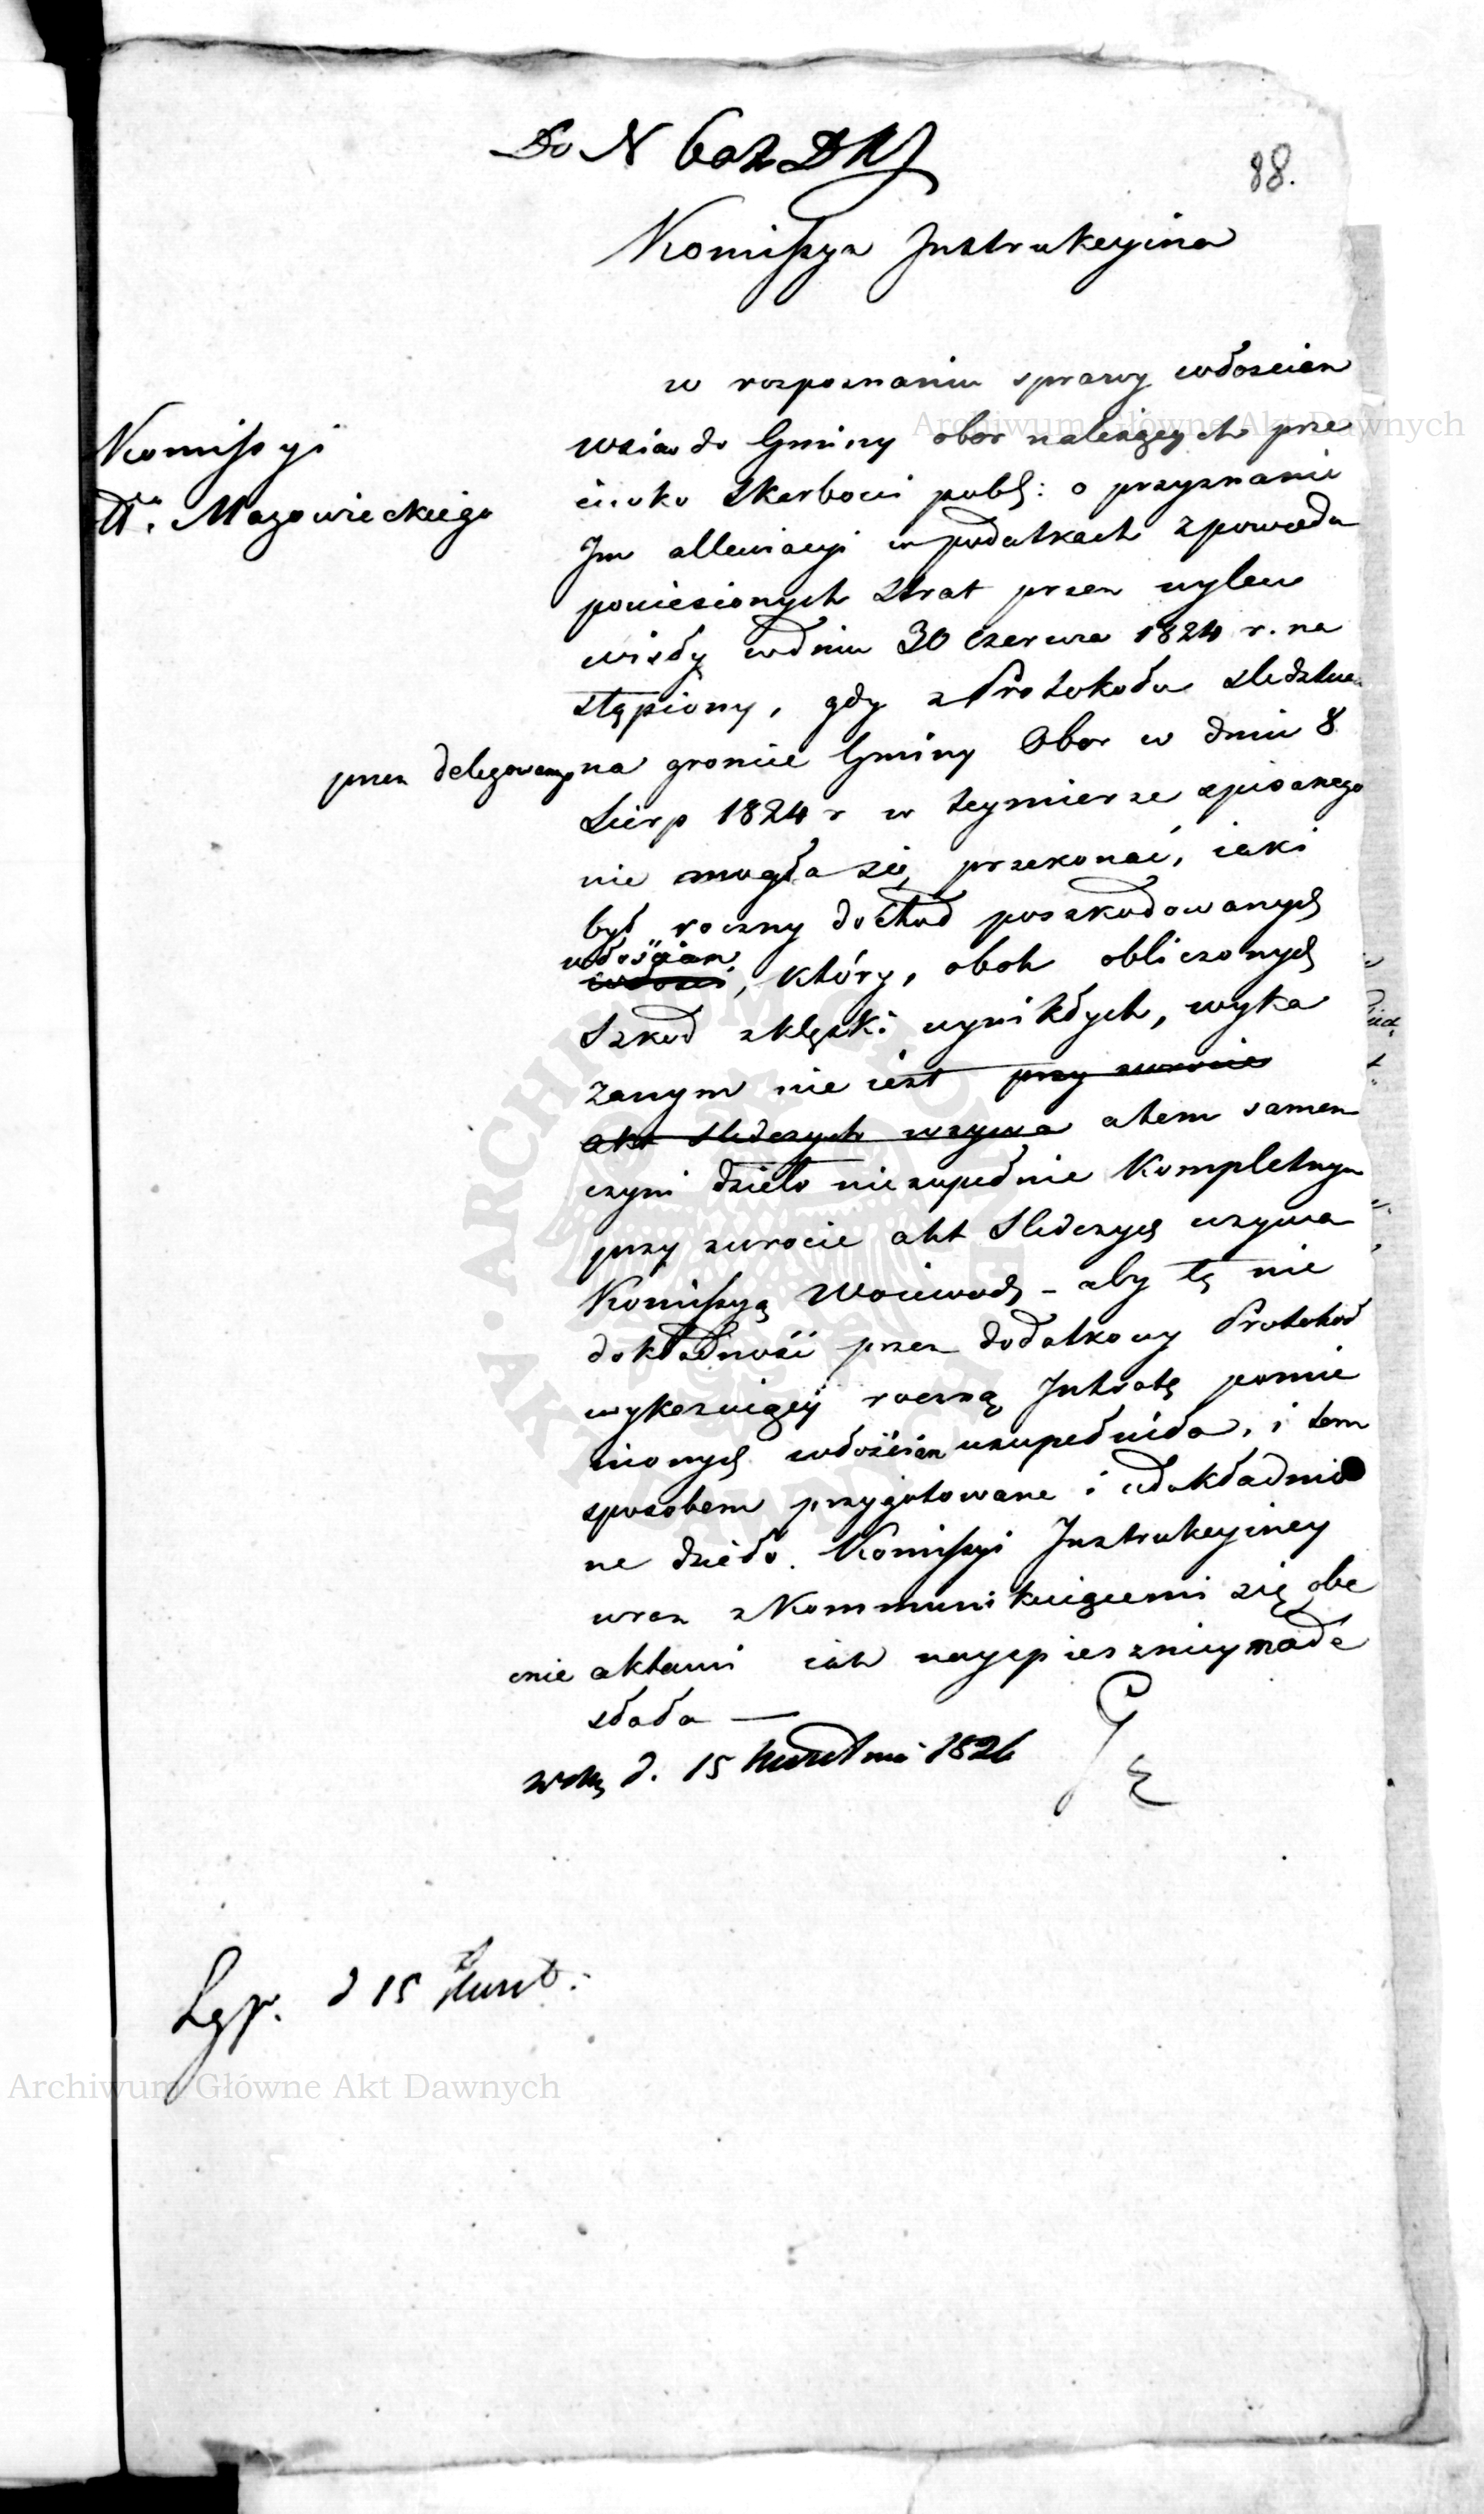 Do N
88.
Komissya Instrukcyina
Komissyi
Wa. Mazowieckiego
w rozpoznaniu sprawy włościan
wsiów do Gminy obor należących prze
ciwko Skarbowi publ: o przyznanie
Im allewiacyi w podatkach z powodu
poniesionych strat przez wylew
wisły w dniu 30 czerwca 1824 r. na
stąpiony, gdy z Protokołu sledztwa
przez delegowanego na groncie Gminy Obor w dniu 8
Sierp 1824 r w teymierze spisanego
nie mogła się przekonać, iaki
był roczny dochód poszkodowanych
włościan
włości, który, obok obliczonych
Szkód z klęski wynikłych, wyka
zanym nie iest przy zwrocie
akt sledczych wzywa a tem samem
czyni dzieło niezupełnie kompletnym
przy zwrocie akt Sledczych wzywa
Komissyą Woiewodz - aby tę nie
dokładność przez dodatkowy Protokół
wykazuiący roczną Intratę pomie
nionych włościan uzupełniła, i tem
sposobem przygotowane i udokładnio
ne dzieło. Komissyi Instrukcyiney
wraz z kommunikuiącemi się obe
cnie aktami iak nayspieszniey nade
słała —
d. 15 kwietnia 1826
d 15 Kwiet:
Archiwum Główne Akt Dawnych
Archiwum Główne Akt Dawnych
ARCHIWUM GŁÓWNE AKT DAWNYCH